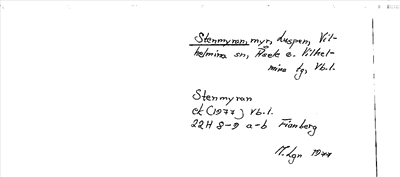 Stenmyran, myr, Luspen, Vil-
helmina sn, Åsele o. Vilhel-
mina tg, Vb.l.
Stenmyran
ek (1977) Vb.l.
22H 8-9 a-b Fianberg
M.Lgn 1977